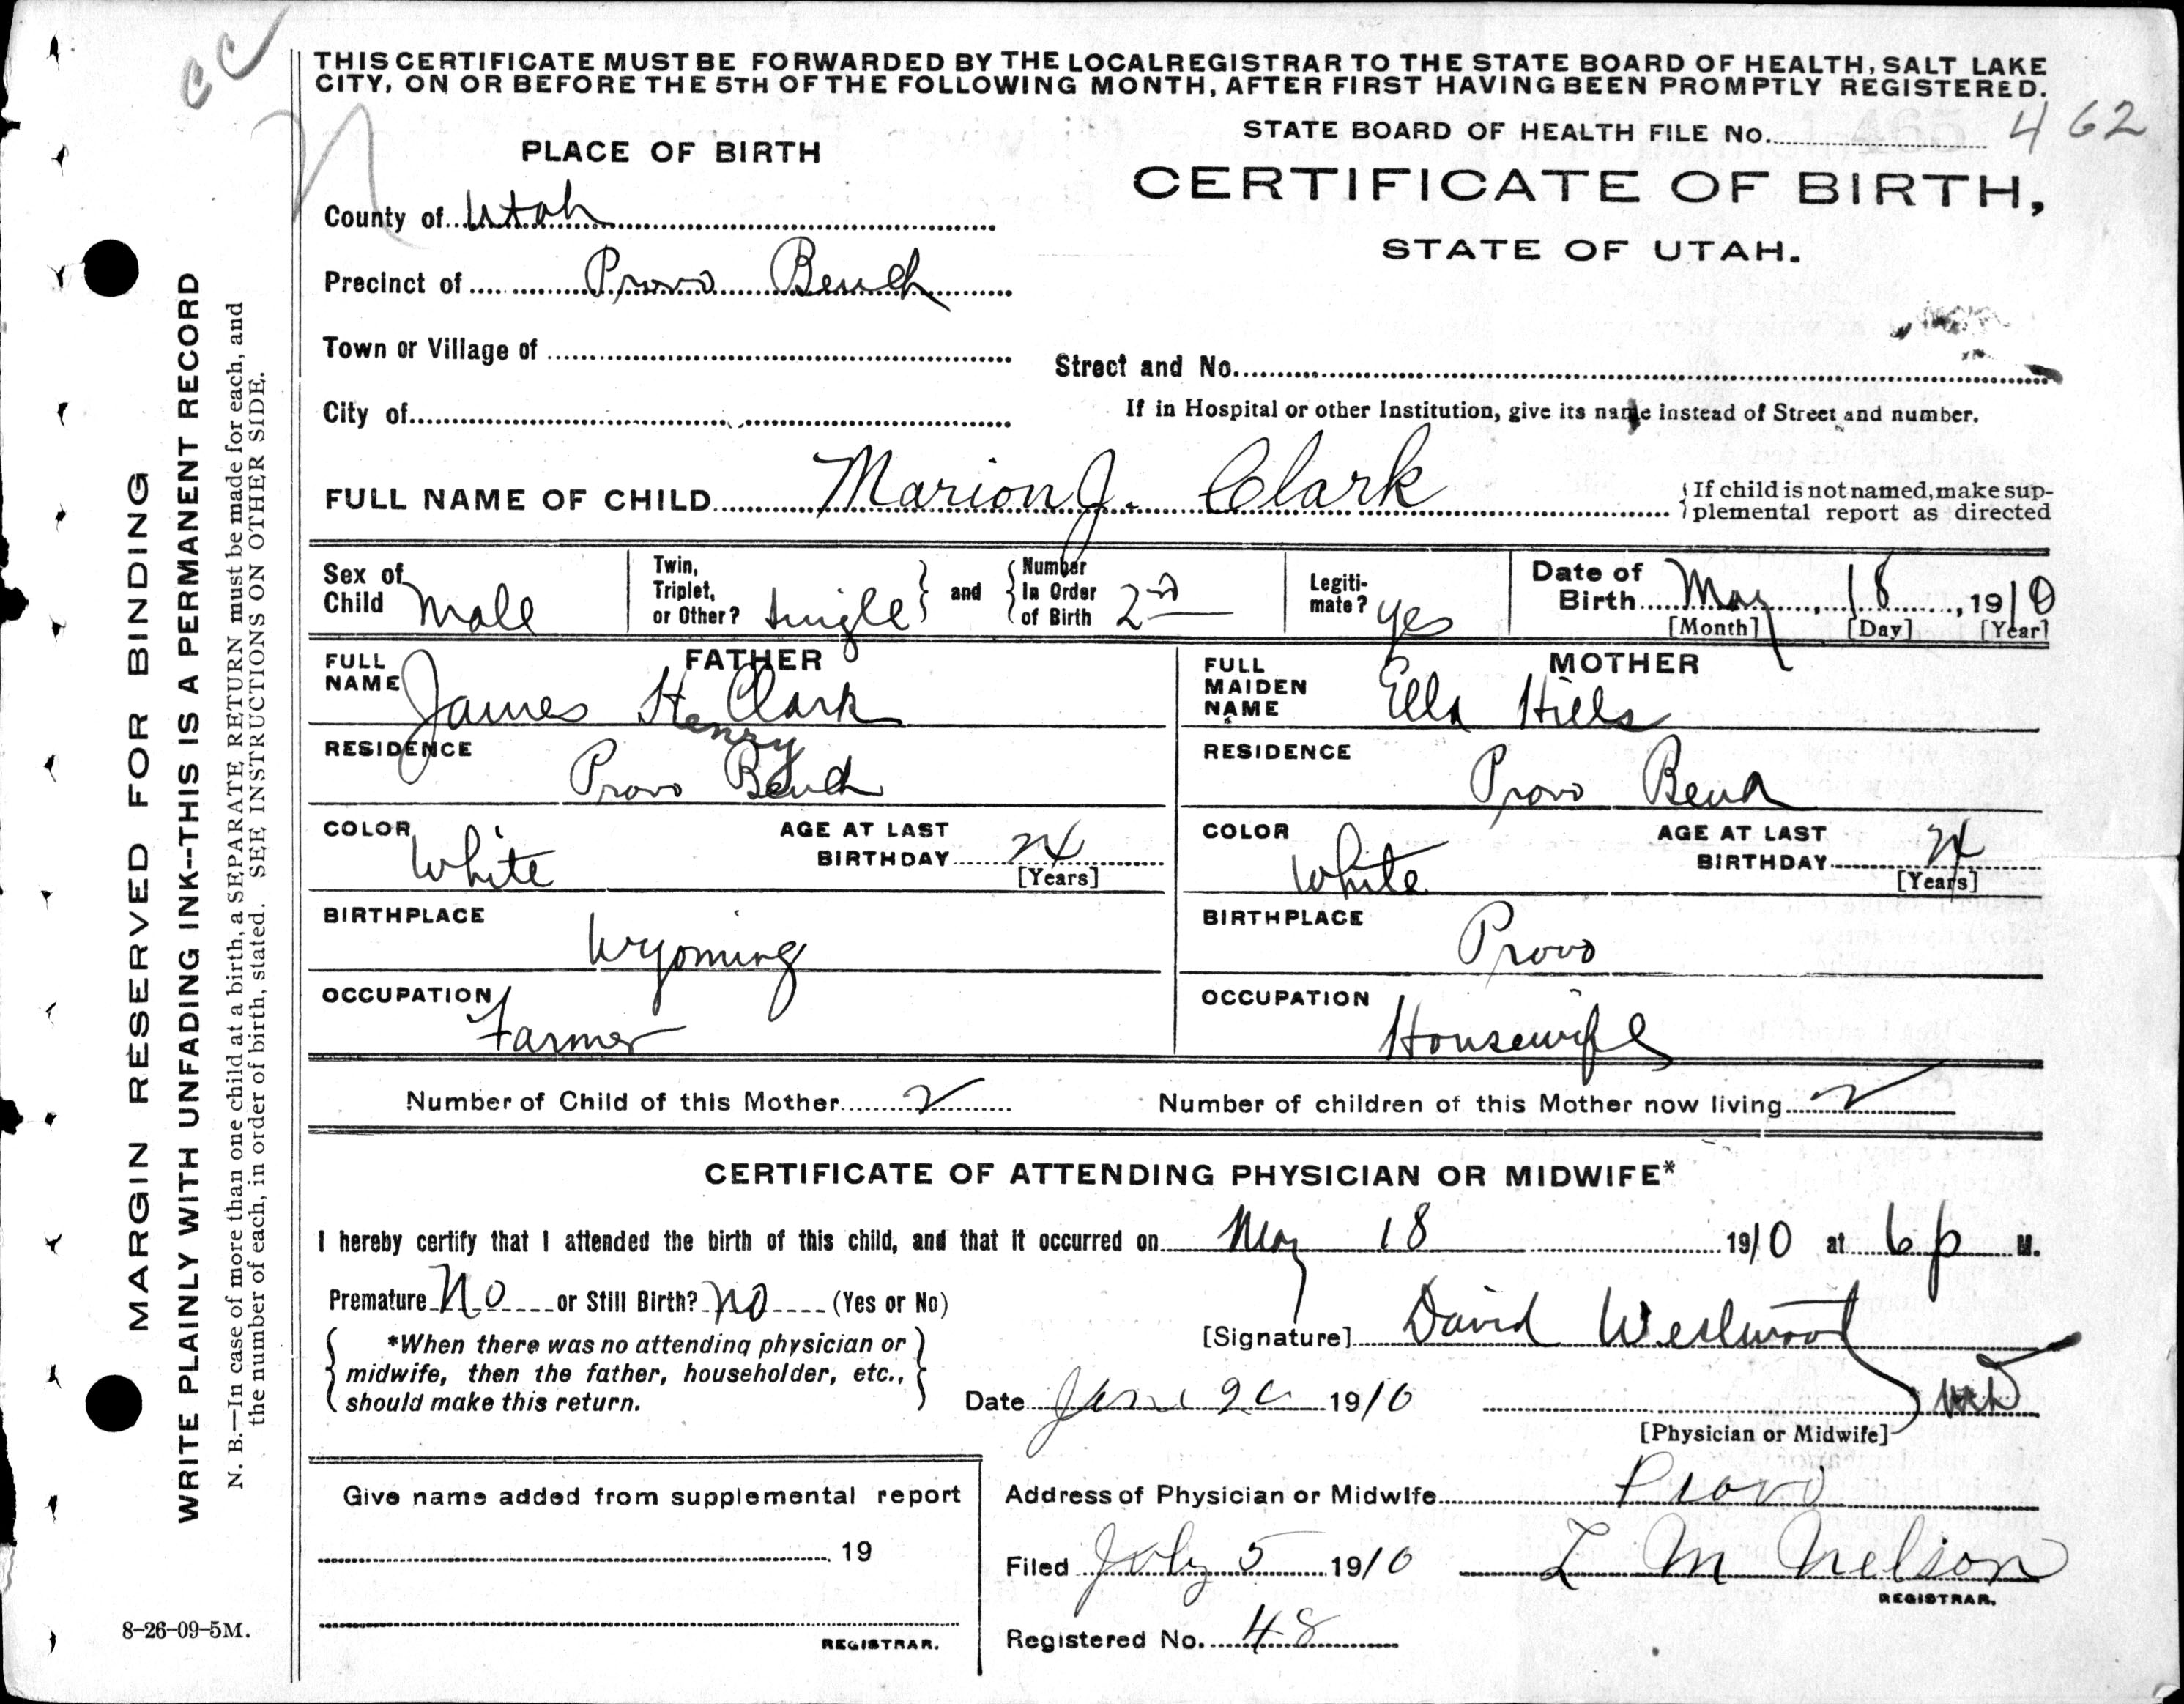 cc
THIS CERTIFICATE MUST BE FORWARDED BY THE LOCAL REGISTRAR TO THE STATE BOARD OF HEALTH, SALT LAKE
CITY, ON OR BEFORE THE 5TH OF THE FOLLOWING MONTH, AFTER FIRST HAVING BEEN PROMPTLY REGISTERED.
STATE BOARD OF HEALTH FILE No. 462
PLACE OF BIRTH
CERTIFICATE OF BIRTH,
STATE OF UTAH.
County of Utah
Precinct of Provo Bench
Town or Village of
Street and No.
City of
If in Hospital or other Institution, give its name instead of Street and number.
FULL NAME OF CHILD Marion J. Clark
{If child is not named, make sup-
plemental report as directed
Sex of Child Male
Twin, Triplet, or Other? Single
and
Number In Order of Birth 2nd
Legiti-mate? yes
Date of Birth May, 18, 1910
[Month] [Day] [Year]
FATHER
FULL NAME James H. Clark
Henry
RESIDENCE
Provo Bench
COLOR White
AGE AT LAST BIRTHDAY 24
[Years]
BIRTHPLACE
Wyoming
OCCUPATION
Farmer
MOTHER
FULL MAIDEN NAME Ella Hills
RESIDENCE
Provo Bench
COLOR White
AGE AT LAST BIRTHDAY 24
[Years]
BIRTHPLACE
Provo
OCCUPATION
Housewife
Number of Child of this Mother 2
Number of children of this Mother now living 2
CERTIFICATE OF ATTENDING PHYSICIAN OR MIDWIFE*
I hereby certify that I attended the birth of this child, and that it occurred on May 18 1910 at 6 p M.
Premature No or Still Birth? no (Yes or No)
*When there was no attending physician or
midwife, then the father, householder, etc.,
should make this return.
[Signature] David Westwood
MD
Date 1910
[Physician or Midwife]
Give name added from supplemental report
19
REGISTRAR.
Address of Physician or Midwife Provo
Filed July 5 1910 L M Nelson
REGISTRAR.
Registered No. 48
MARGIN RESERVED FOR BINDING
WRITE PLAINLY WITH UNFADING INK--THIS IS A PERMANENT RECORD
N. B.—In case of more than one child at a birth, a SEPARATE RETURN must be made for each, and
the number of each, in order of birth, stated. SEE INSTRUCTIONS ON OTHER SIDE.
8-26-09-5M.